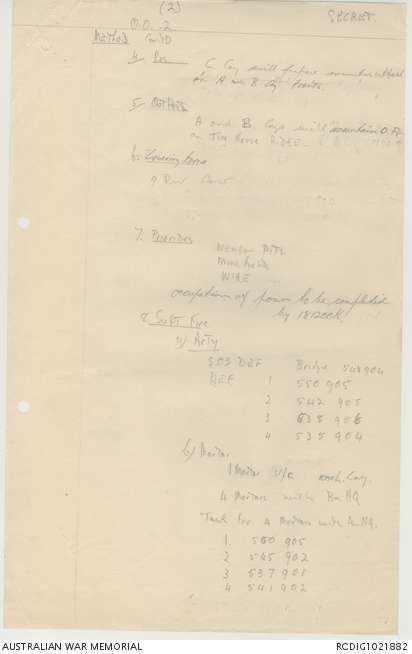 (2)
SECRET.
M.O. 2
Method Cont'd
4. Res
C Coy will prepare counter attack
on A and B Coy fronts.
5. Outposts
A and B Coys will maintain O.Ps
on Jing House RIDGE.
6.
7. Priorities
Weapon Pits
Mine fields
WIRE
occupation of posns to be completed
by 181200K.
8. Supt Fire
a) Arty
SOS DEF Bridge 548904
DEF 1 550 905
2 542 905
3 535 906
4 535 904
b) Mortar
1 Mortar u/c each Coy.
4 Mortars with Bn HQ
Task for 4 Mortars with Bn HQ.
1. 550 905
2 545 902
3 537 901
4 541 902
AUSTRALIAN WAR MEMORIAL
RCDIG1021882